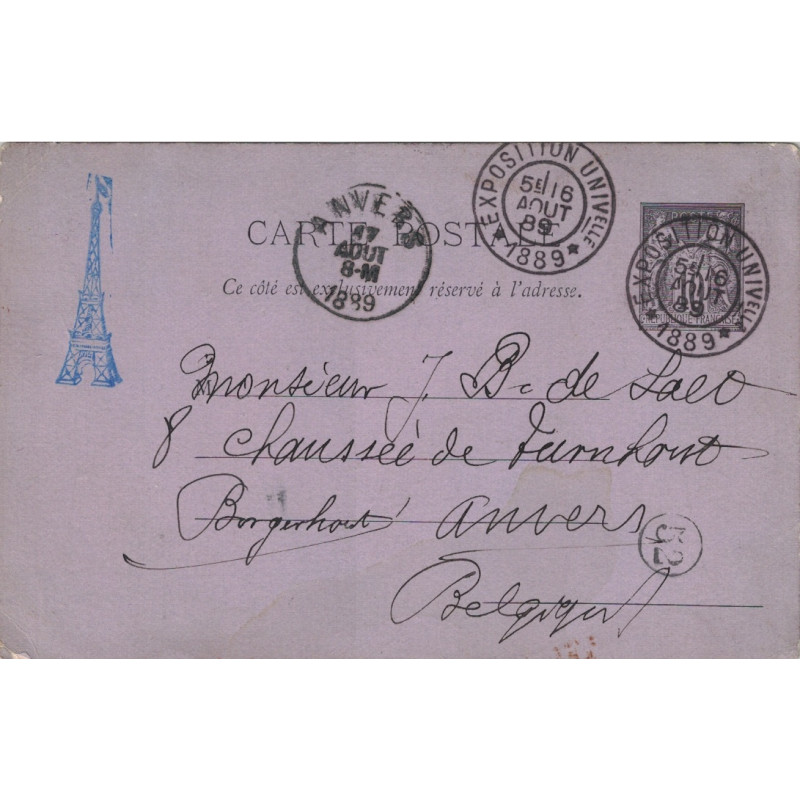 EXPOSITION UNIVELLE
5E/16
AOUT
89
* 1889 *
ANVERS
17
AOUT
8-M
1889
CARTE POSTALE
Ce côté est exclusivement réservé à l'adresse.
POSTES
RÉPUBLIQUE FRANÇAISE
EXPOSITION UNIVELLE
5E/16
AOUT
89
* 1889 *
Monsieur J. B. de Laet
8 chaussée de Turnhout
Borgerhout Anvers
52
Belgique